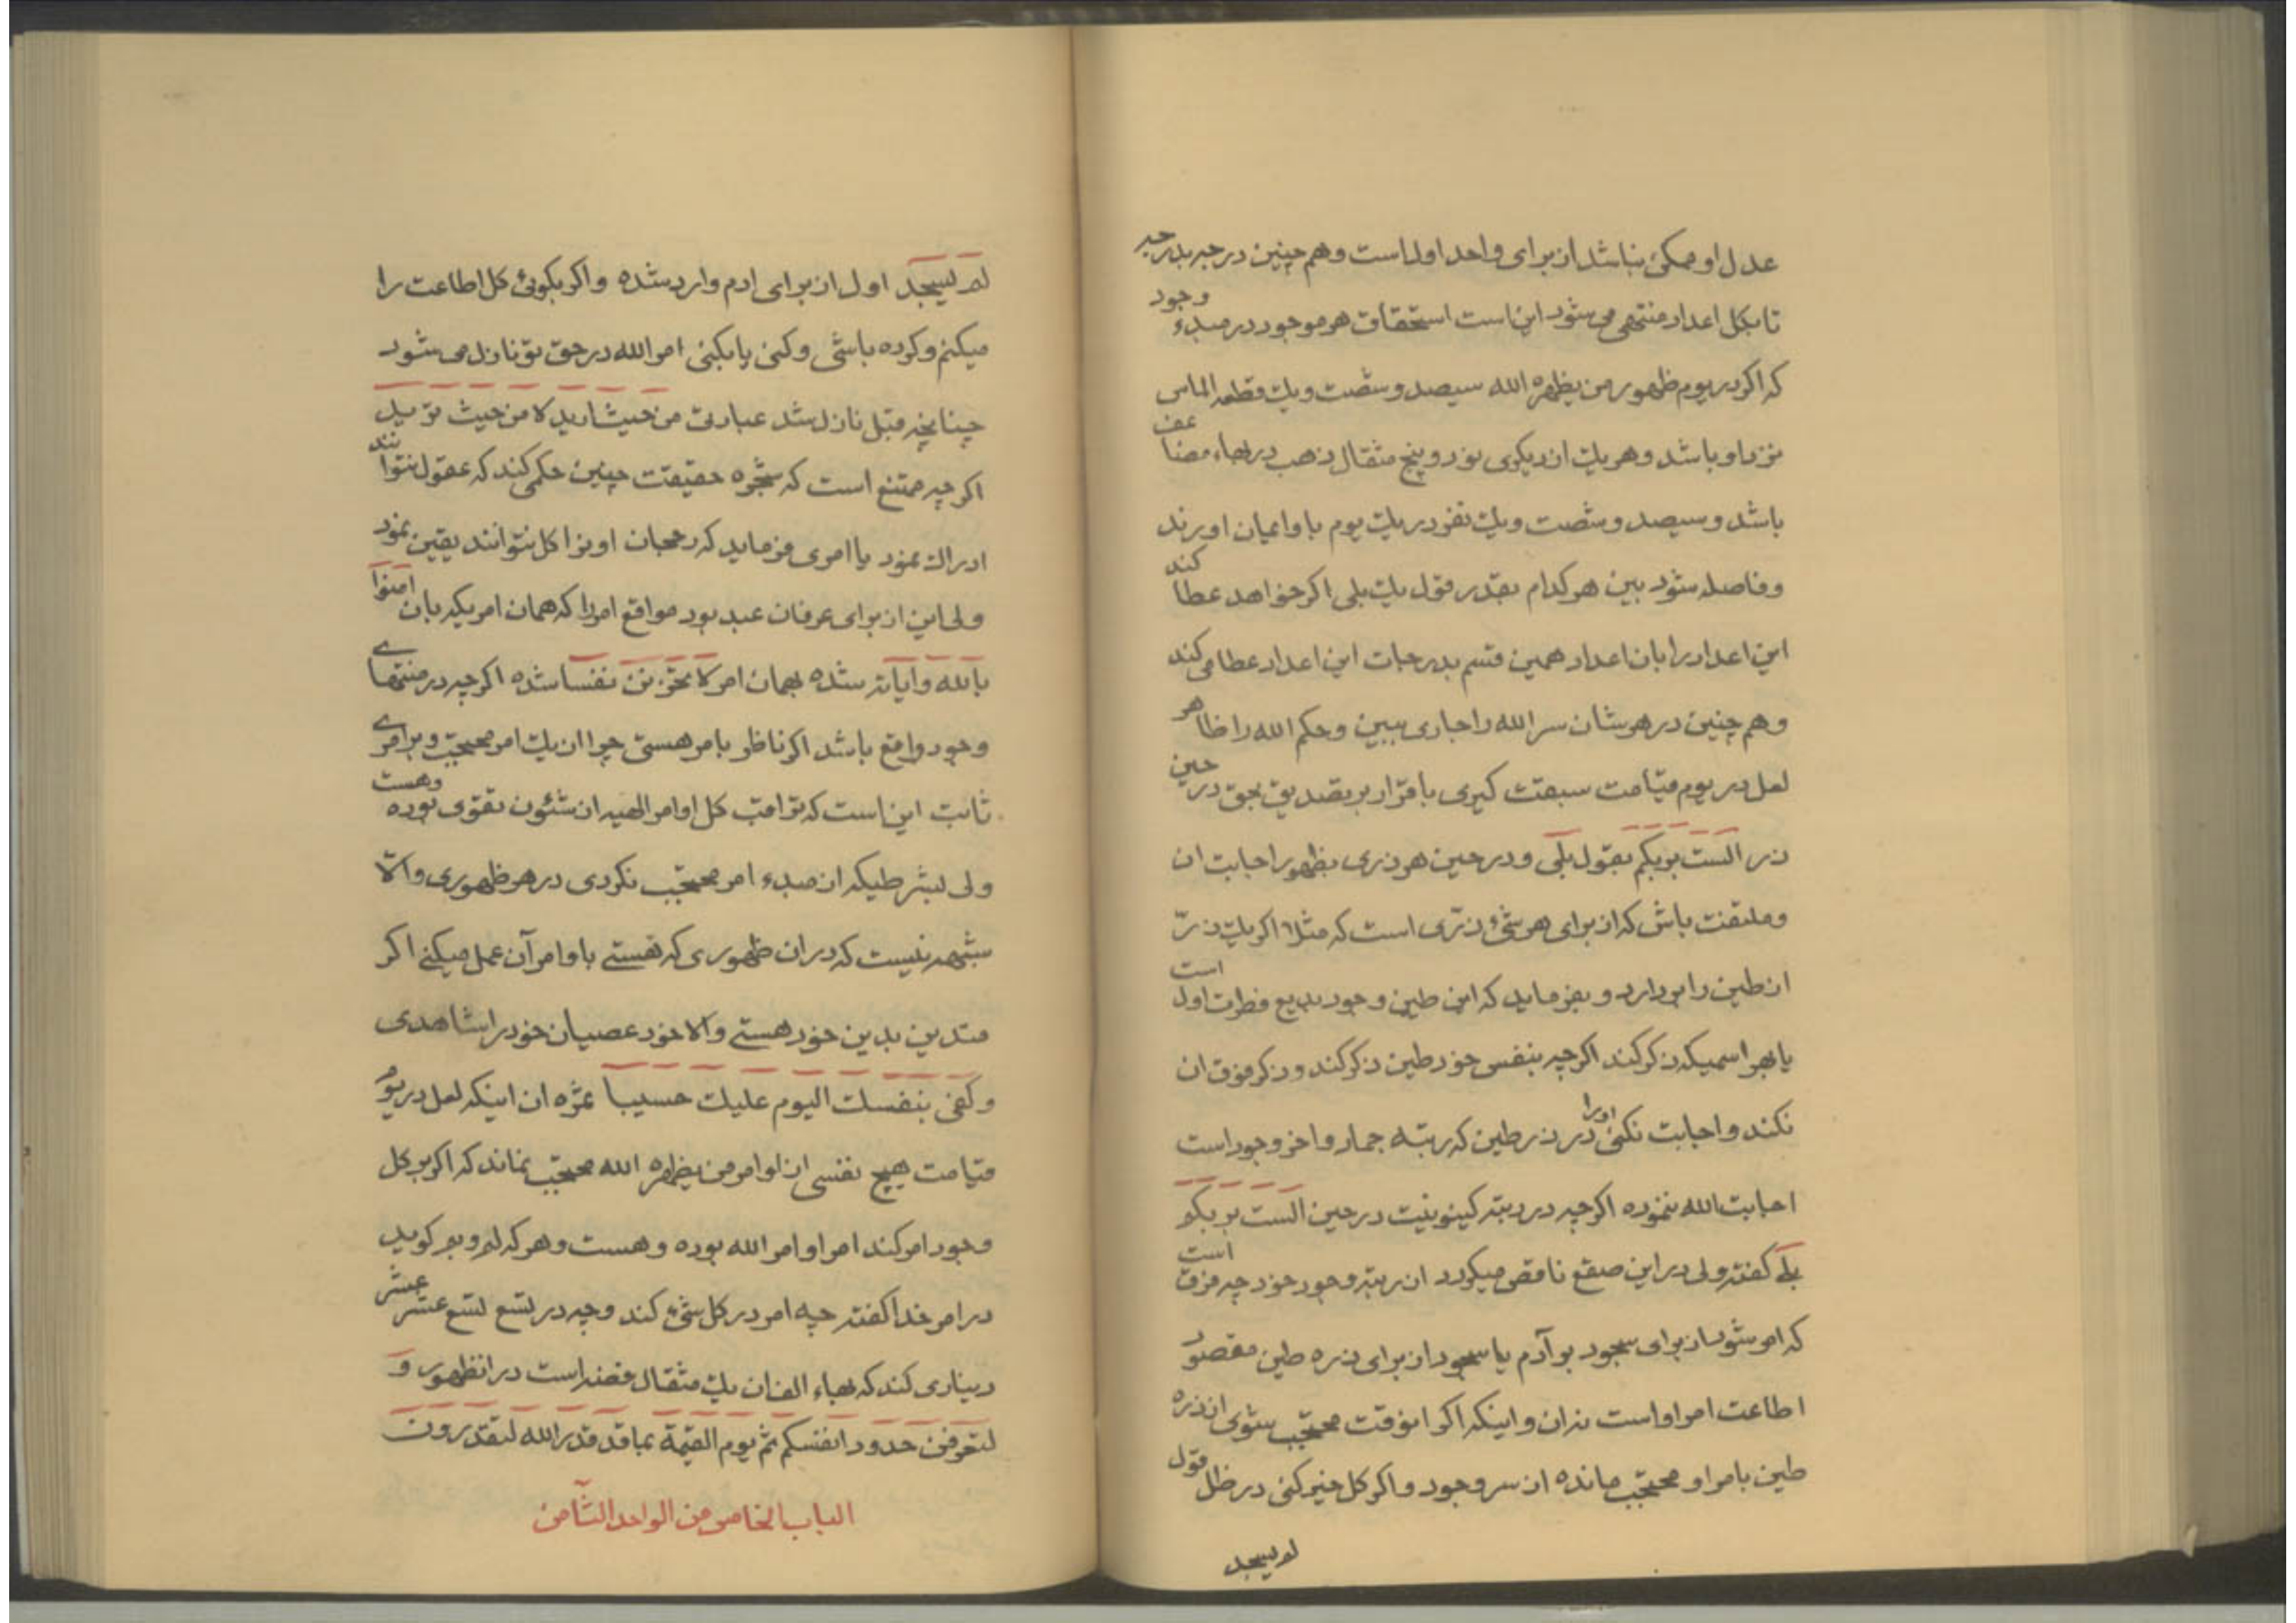 عدل او ممکن نباشد از برای واحد اول است و هم چنین درجه بدرجه
تا بکل اعداد منتهی می شود این است استحقاق هر موجود در مبدء وجود
که اگر در یوم ظهور من یظهره الله سیصد و شصت و یک قطعه الماس
نزد او باشد و هر یک از دیگری نود و پنج مثقال ذهب در بهاء مضاعف
باشد و سیصد و شصت و یک نفر در یک یوم باو ایمان اورند
و فاصله شود بین هر کدام بقدر قول یک بلی اگر خواهد عطا کند
این اعداد را بان اعداد همین قسم بدرجات این اعداد عطا می کند
و هم چنین در هر شان سر الله را جاری ببین و حکم الله را ظاهر
لعل در یوم قیامت سبقت گیری باقرار بر تصدیق بحق در حین
ذر الست بربکم بقول بلی و در حین هر ذری بظهور اجابت ان
و ملتفت باش که از برای هر شئ ذری است که مثلا اگر یک ذر
از طین را بر دارد و بفرماید که این طین وجود بدیع فطرت اول است
یا بهر اسمیکه ذکر کند اگر چه بنفس خود طین ذکر کند و ذکر فوق ان
نکند و اجابت نکنی اورا در ذر طین که رتبه جماد و اخر وجود است
اجابت الله ننموده اگر چه در رتبه کینونیت در حین الست بربکم
بلے گفته ولی در این صقع ناقص میگردد از رتبه وجود خود چه فرق است
که امر شود از برای سجود بر آدم یا سجود از برای ذره طین مقصود
اطاعت امر او است نه ان و اینکه اگر انوقت محتجب شوی از ذره
طین بامر او محتجب مانده از سر وجود و اگر کل خیر کنی در ظل قول
لم یسجد
لم یسجد اول از برای ادم وارد شده و اگر بگوئی کل اطاعت را
میکنم و کرده باشی و کنی یا بکنی امر الله در حق تو نازل می شود
چنانچه قبل نازل شد عبادتی من حیث ارید لا من حیث ترید
اگر چه ممتنع است که شجره حقیقت چنین حکمی کند که عقول نتوانند
ادراک نمود یا امری فرماید که رجحان او را کل نتوانند یقین نمود
ولی این از برای عرفان عبد بود مواقع امر را که همان امریکه بان امنوا
بالله و ایاته شده بهمان امر لا تحزنن نفسا شده اگر چه در منتهای
وجود واقع باشد اگر ناظر بامر هستی چرا از یک امر محتجب و بر امرے
ثابت این است که تراقب کل اوامر الهیه از شئون تقوی بوده و هست
ولی بشرطیکه از مبدء امر محتجب نگردی در هر ظهوری و الا
شبهه نیست که در ان ظهوری که هستے باوامر آن عمل میکنے اگر
متدین بدین خود هستے و الا خود عصیان خود را شاهدی
و کفی بنفسک الیوم علیک حسیبا ثمره ان اینکه لعل در یوم
قیامت هیچ نفسی از اوامر من یظهره الله محتجب نماند که اگر بر کل
وجود امر کند امر او امر الله بوده و هست و هر که لم و بم گوید
در امر خدا گفته چه امر در کل شئ کند و چه در تسع تسع عشر عشر
دیناری کند که بهاء الف ان یک مثقال فضه است در انظهور و
لتعرفن حدود انفسکم ثم یوم القیمة بما قد قدر الله لتقدرون
الباب الخامس من الواحد الثامن